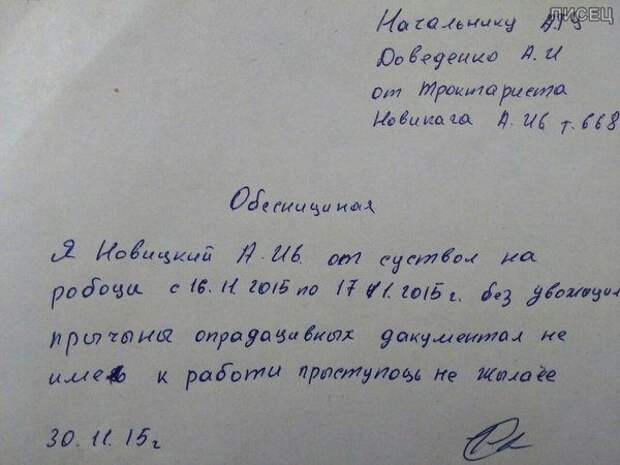 ПИСЕЦ
Начальнику АТЦ
Доведенко А.И
от трактариста
Новикага А.Ив т.668
Обеснициная
Я Новицкий А.Ив. от суствол на
робоци с 16.11.2015 по 17.11.2015г. без увожация
причыны опрадацивных дакументал не
имею к работи прыступоць не жылаее
30.11.15г